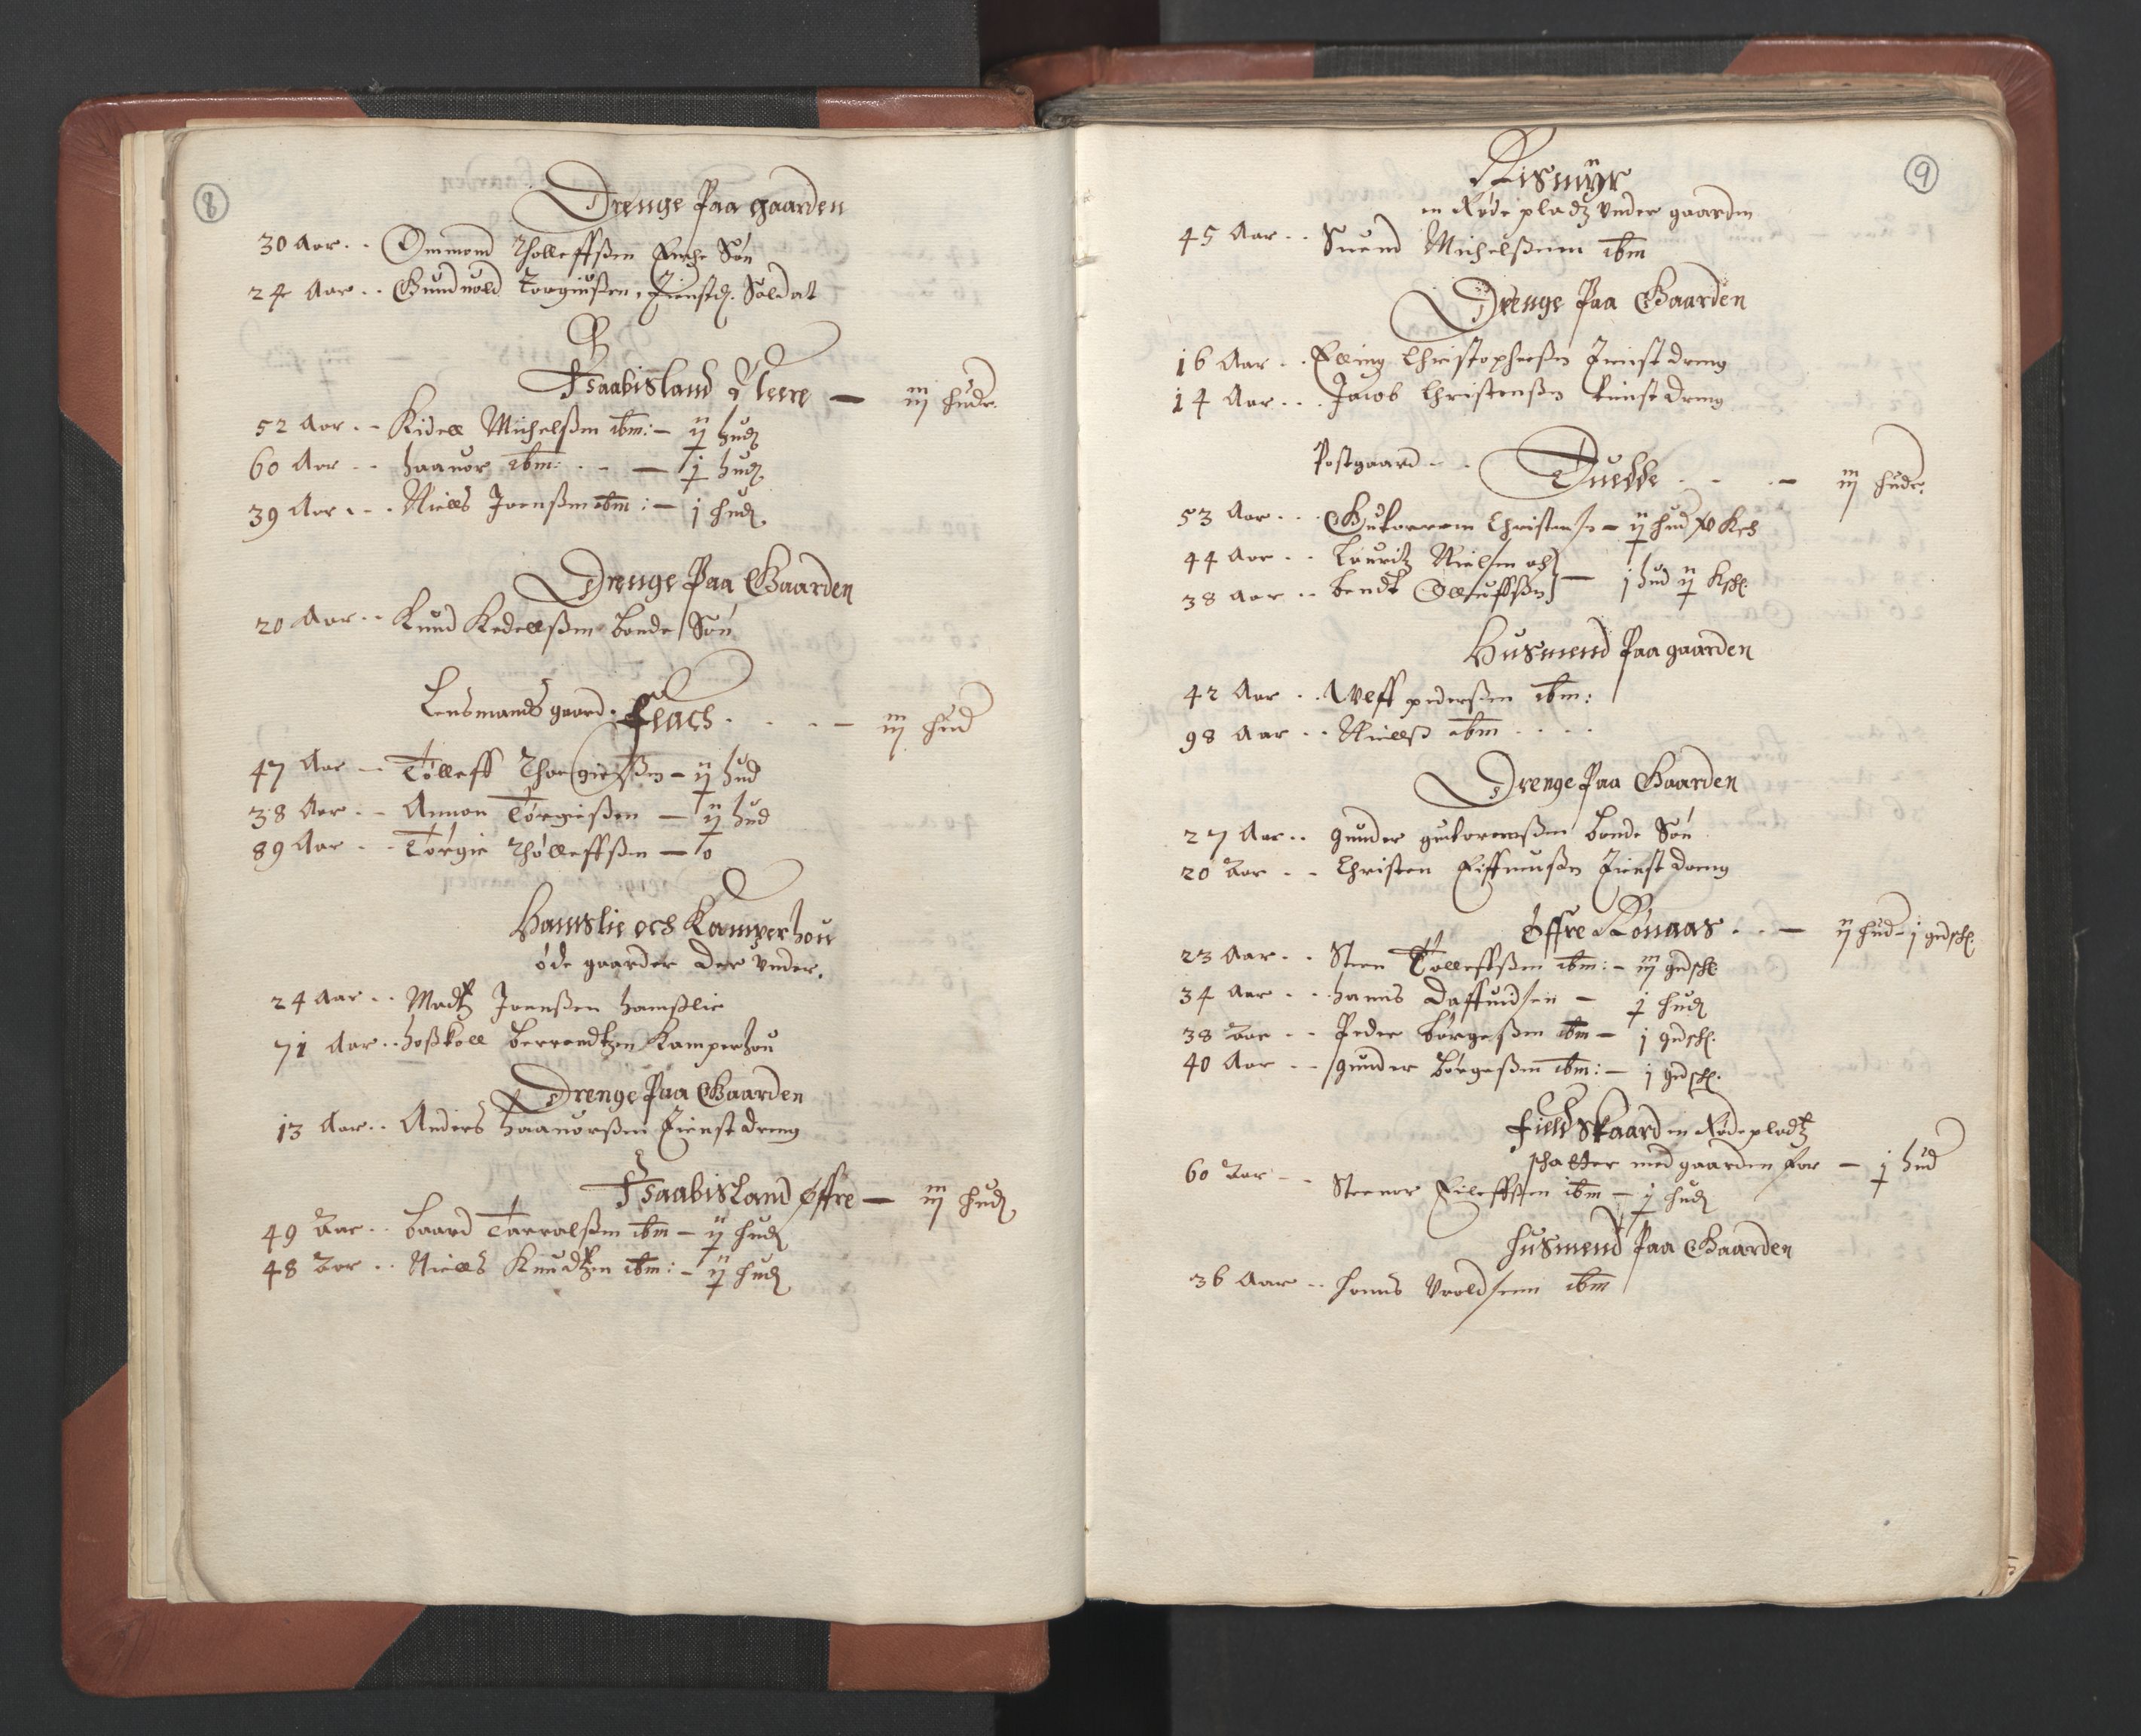 8
Drenge Paa gaarden
30 Aar .. Ommond Tholleffßen Enche Søn
24 Aar .. Gunduold Torgiußen, Tienstd. Soldat
Fsaabisland Neere — iij hude.
52 Aar .. Kidell Michelßen ibm: — ij hud
60 Aar .. haauor ibm: .. — j hud
39 Aar .. Niells Joenßen ibm: — j hud
Drenge Paa Gaarden
20 Aar .. Knud Kedellßen bonde Søn
Lensmands gaard. Flach . . . — iij hud
47 Aar — Tølleff Thorgierßen — ij hud
38 Aar .. Annon Tørgiußen — ij hud
89 Aar .. Tørgie Thølleffßen — 0
Hamslie och Kamperhou
øde gaarder der under.
24 Aar .. Madtz Joenßen hamßlie
71 Aar .. hoßkoll berrendtzen Kamperhou
Drenge Paa Gaarden
13 Aar .. Anders haauorßen Tienstdreng
Fsaabisland øffre — iij hud
49 Aar .. baard Tarralßen ibm — ij hud
48 Aar .. Niells Knudtzen ibm: — ij hud
9
Rismyr
en Røde pladtz under gaarden
45 Aar .. Suend Michelßenn ibm
Drenge Paa Gaarden
16 Aar .. Elling Christophersßen Tienstdreng
14 Aar .. Jacob Christenßen tienstdreng
Postgaard .. Duelle . . — iij hude.
53 Aar .. Gutorrem Christensen — ij hud
44 Aar .. Lauritz Nielsen och
38 Aar .. bendt Olluffßen — j hud ij
Husmend Paa gaarden
42 Aar .. Wleff pederßen ibm:
98 Aar .. Niellß ibm . . . .
Drenge Paa Gaarden
27 Aar .. gunder gutoremßen bonde Søn
20 Aar .. Christen Eiffnnußen Tienstdreng
øffre Rønaas . . — ij hud — j gedsch.
23 Aar .. Steen Tølleffßen ibm: — iij gedsch
34 Aar .. hanns Daffuindsen — j hud
38 Aar .. Peder børgeßen ibm — j gedsch.
40 Aar .. gunder børgeßen ibm: — j gedsch.
Field Skaard en Rødepladtz
schatter med gaarden for — j hud
60 Aar .. Steenor Eileffßen ibm — j hud
Husmend Paa Gaarden
36 Aar .. hanns Uroldsenn ibm